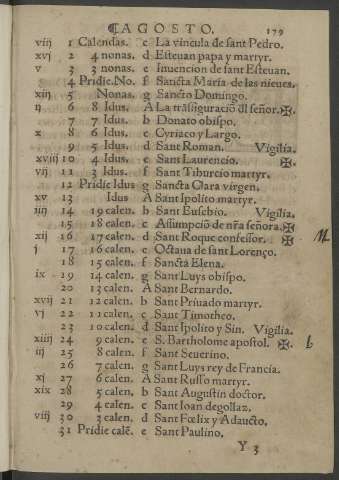 ¶AGOSTO. 179
viij 1 Calendas. c La vincula de sant Pedro.
xvj 2 4 nonas. d Esteuan papa y martyr.
v 3 3 nonas. e Inuencion de sant Esteuan.
4 Pridie.No. f Sancta Maria de las nieues.
xiij 5 Nonas. g Sancto Domingo.
ij 6 8 Idus. A La trãsfiguraciõ dl señor.✠
7 7 Idus. b Donato obispo.
x 8 6 Idus. c Cyriaco y Largo.
9 5 Idus. d Sant Roman. Vigilia.
xviij 10 4 Idus. e Sant Laurencio. ✠
vij 11 3 Idus. f Sant Tiburcio martyr.
12 Pridie Idus g Sancta Clara virgen.
xv 13 Idus A Sant Ipolito martyr.
iiij 14 19 calen. b Sant Eusebio. Vigilia.
15 18 calen. c Assumpciõ de nr̃a señora.✠
xij 16 17 calen. d Sant Roque confessor. ✠
j 17 16 calen. e Octaua de sant Lorenço.
18 15 calen. f Sancta Elena.
ix 19 14 calen. g Sant Luys obispo.
20 13 calen. A Sant Bernardo.
xvij 21 12 calen. b Sant Priuado martyr.
vj 22 11 calen. c Sant Timotheo.
23 10 calen. d Sant Ipolito y Sin. Vigilia.
xiiij 24 9 calen. e S. Bartholome apostol. ✠ b
iij 25 8 calen. f Sant Seuerino.
26 7 calen. g Sant Luys rey de Francia.
xj 27 6 calen. A Sant Russo martyr.
xix 28 5 calen. b Sant Augustin doctor.
29 4 calen. c Sant Ioan degollaz.
viij 30 3 calen. d Sant Fœlix y Adaucto.
31 Pridie calẽ. e Sant Paulino.
Y 3